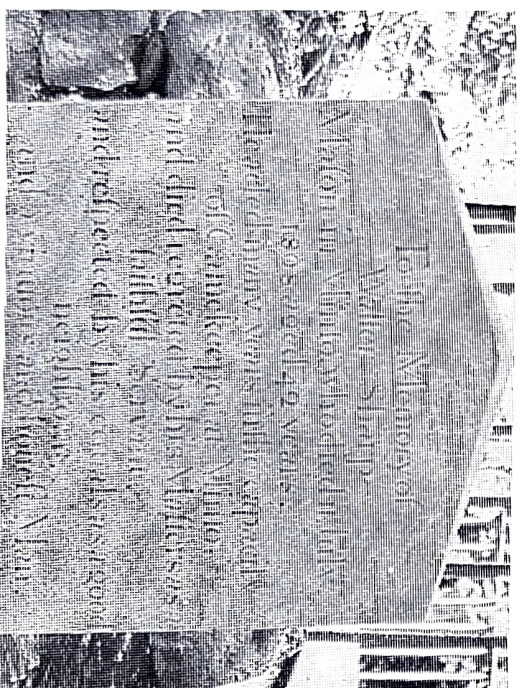 To the Memory of
Walter Sharp
Mason in Minto who died in July
1803 aged 42 years.
He acted many years in the capacity
of Gamekeeper at Minto.
and died regretted by his Master as a
faithful Servant
and respected by his equals as a good
neighbour
and a Man